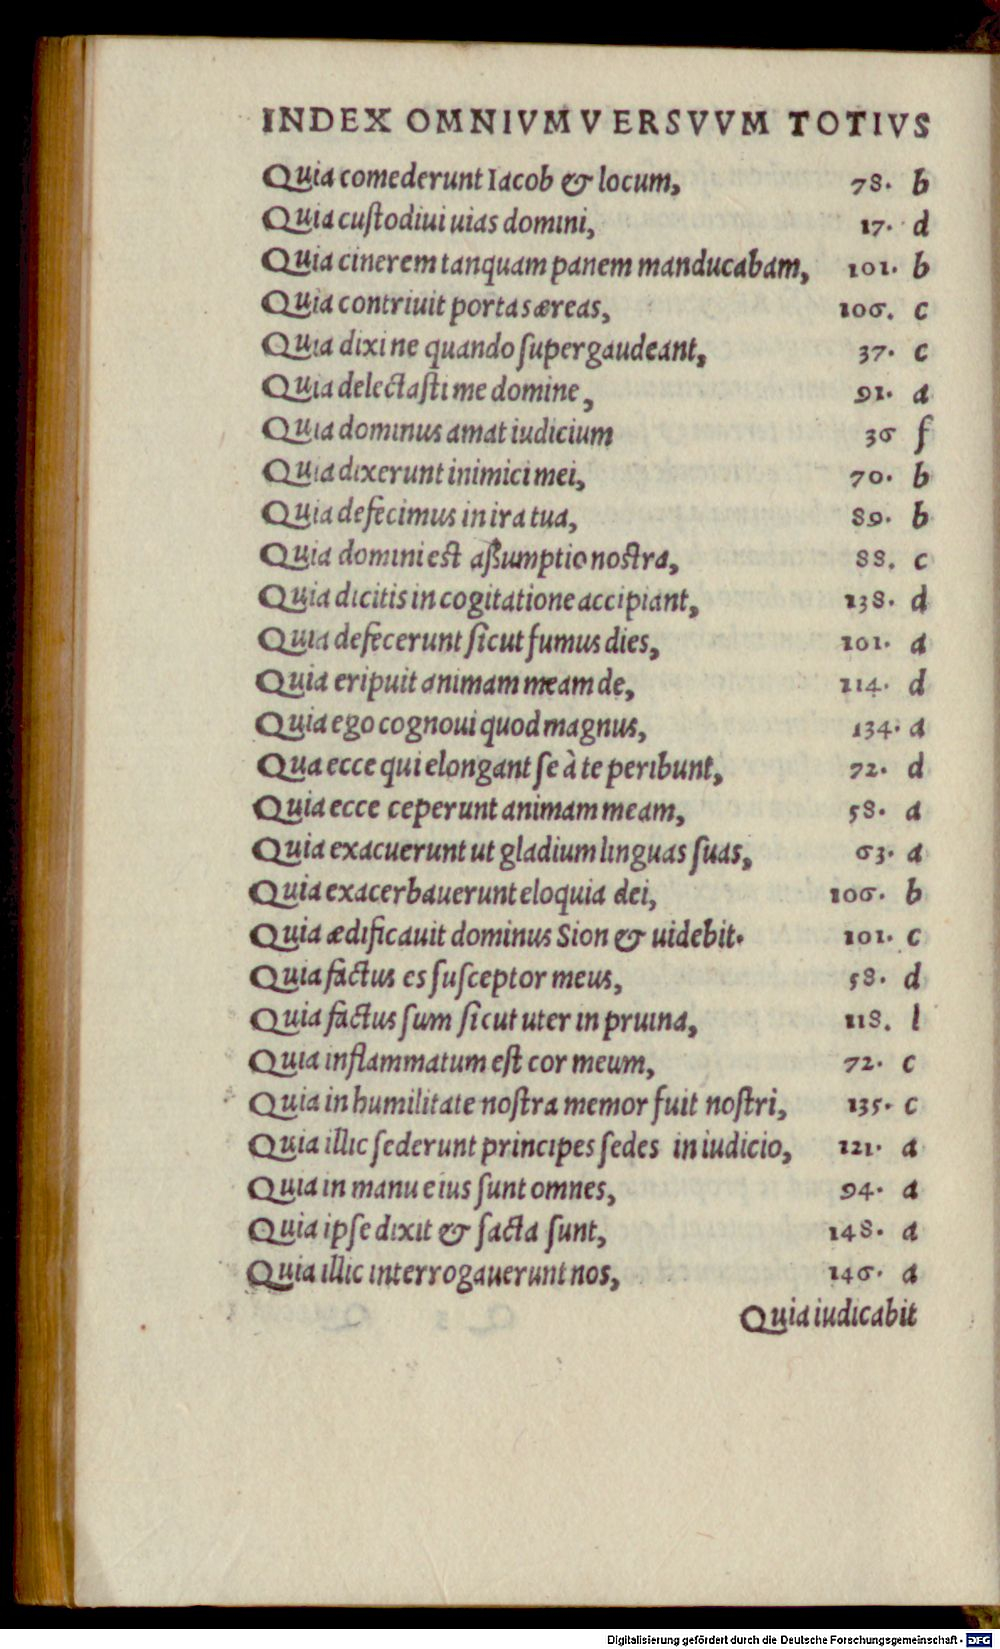 INDEX OMNIVM VERSVVM TOTIVS
Quia comederunt Iacob & locum, 78. b
Quia cuſtodiui uias domini, 17. d
Quia cinerem tanquam panem manducabam, 101. b
Quia contriuit portas æreas, 106. c
Quia dixi ne quando ſupergaudeant, 37. c
Quia delectaſti me domine, 91. a
Quia dominus amat iudicium 36 f
Quia dixerunt inimici mei, 70. b
Quia defecimus in ira tua, 89. b
Quia domini est aßumptio nostra, 88. c
Quia dicitis in cogitatione accipiant, 138. d
Quia defecerunt ſicut fumus dies, 101. a
Quia eripuit animam meam de, 114. d
Quia ego cognoui quod magnus, 134. a
Qua ecce qui elongant ſe à te peribunt, 72. d
Quia ecce ceperunt animam meam, 58. a
Quia exacuerunt ut gladium linguas ſuas, 63. a
Quia exacerbauerunt eloquia dei, 106. b
Quia ædificauit dominus Sion & uidebit. 101. c
Quia factus es ſuſceptor meus, 58. d
Quia factus ſum ſicut uter in pruina, 118. l
Quia inflammatum eſt cor meum, 72. c
Quia in humilitate noſtra memor fuit noſtri, 135. c
Quia illic ſederunt principes ſedes in iudicio, 121. a
Quia in manu eius ſunt omnes, 94. a
Quia ipſe dixit & ſacta ſunt, 148. a
Quia illic interrogauerunt nos, 146. a
Quia iudicabit
Digitalisierung gefördert durch die Deutsche Forschungsgemeinschaft - DFG